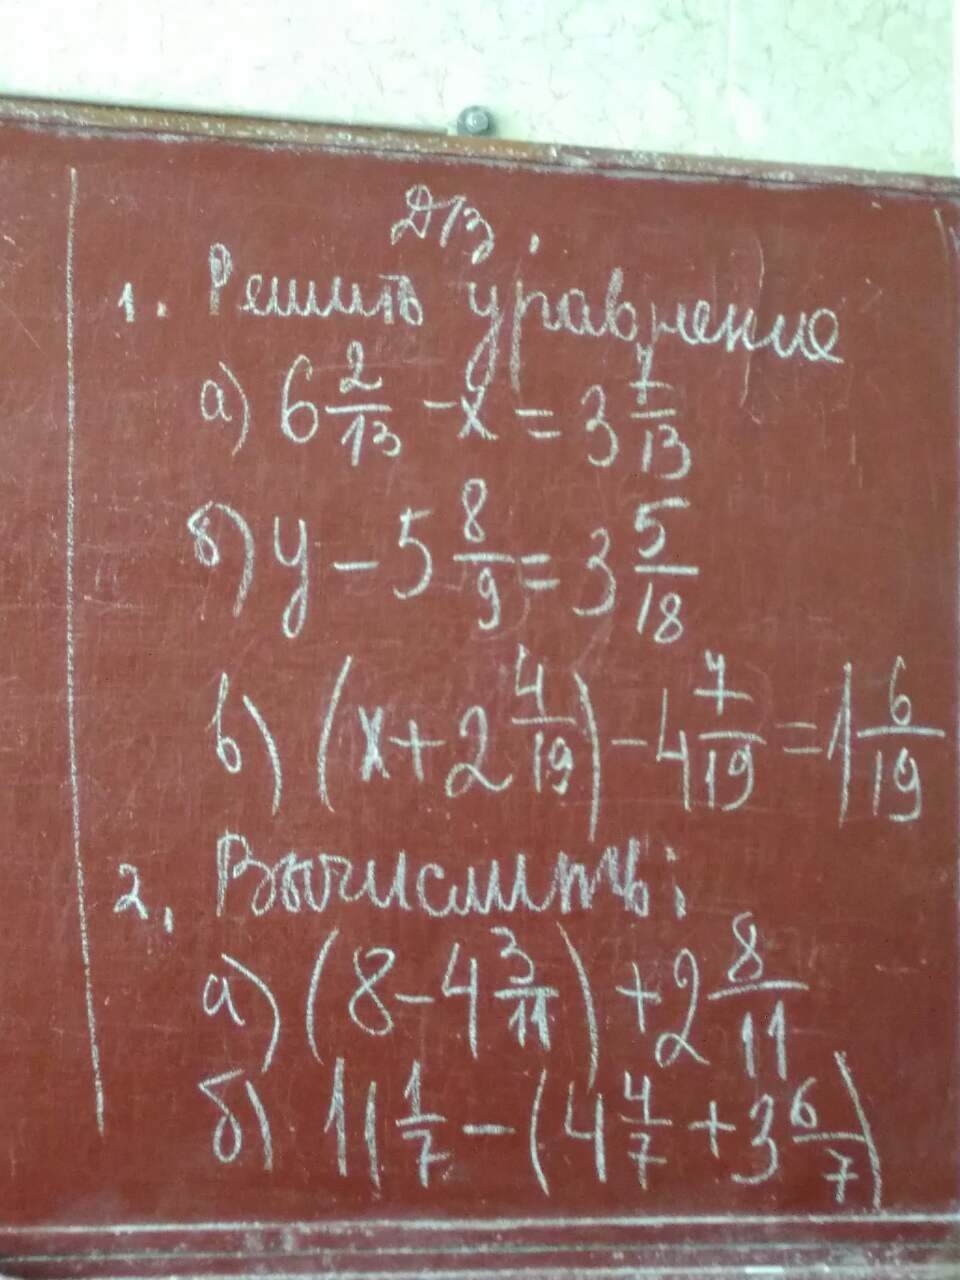 ДЗ.
1. Решить уравнение
а) 6 2/13 - x = 3 7/13
б) y - 5 8/9 = 3 5/18
в) (x + 2 4/19) - 4 7/19 = 1 6/19
2. Вычислить:
а) (8 - 4 3/11) + 2 8/11
б) 11 1/7 - (4 4/7 + 3 6/7)